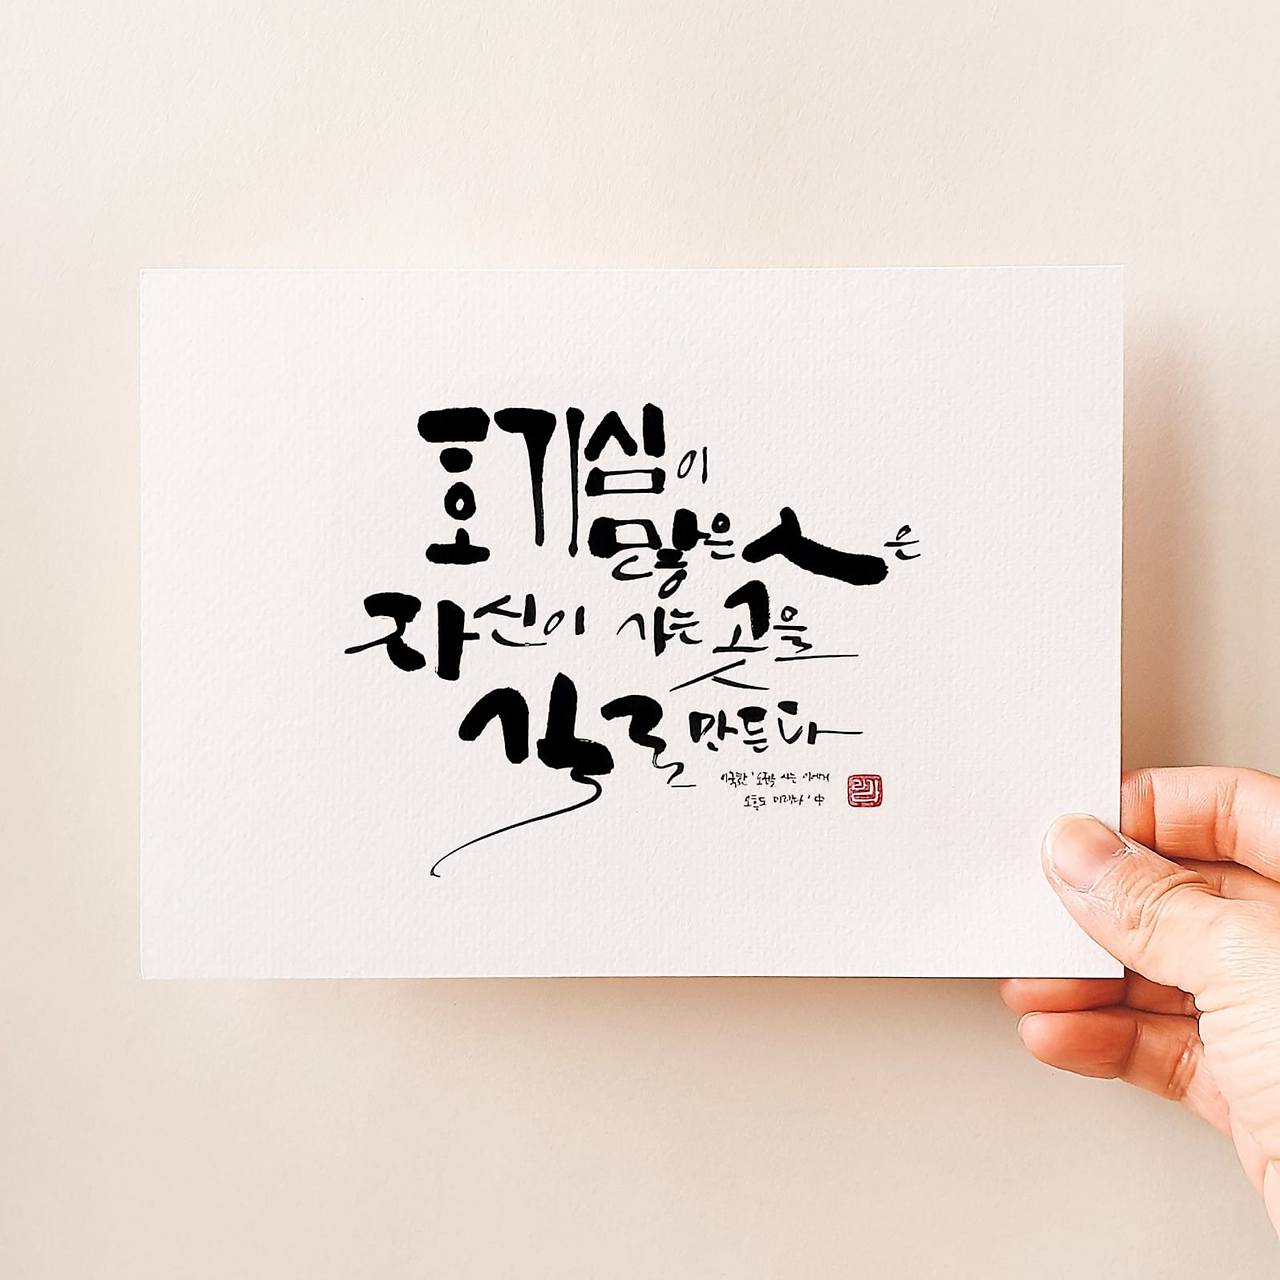 호기심이
많은 人은
자신이 가는 곳을
길로 만든다
이국환 '오전을 사는 이에게
오후도 미래다' 中